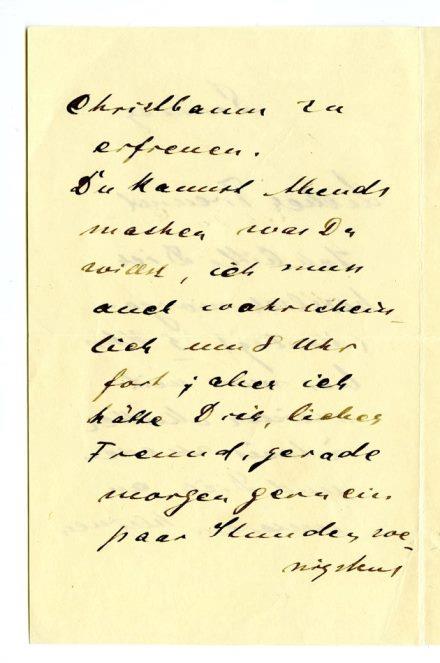 Christbaum zu
erfreuen.
Du kannst Abends
machen was Du
willst, ich muss
auch wahrschein-
lich um 8 Uhr
fort; aber ich
hätte Dich, lieber
Freund, gerade
morgen gern ein
paar Stunden we-
nigstens